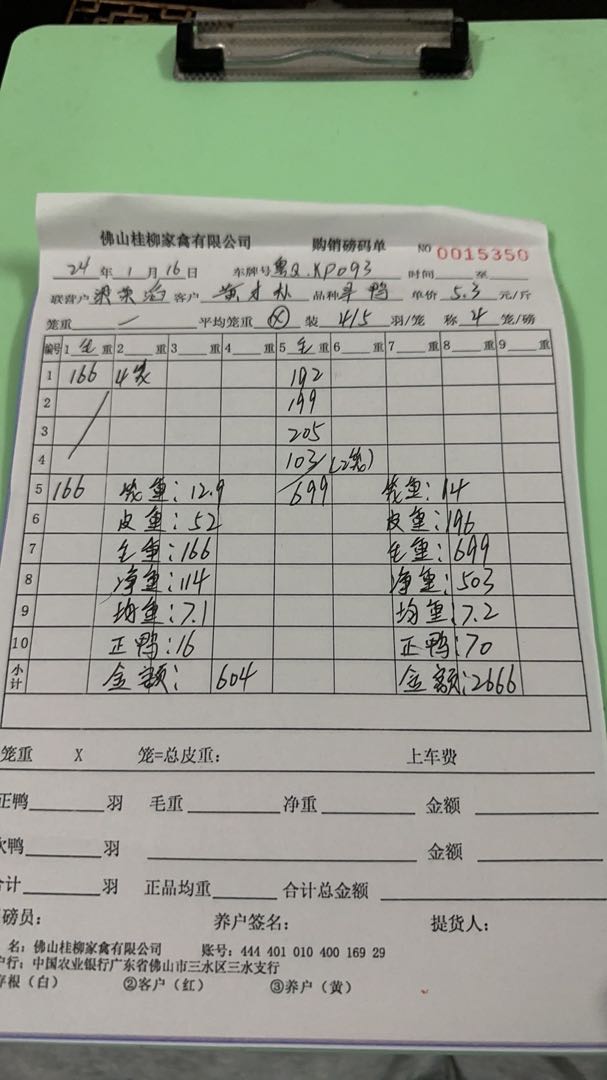 佛山桂柳家禽有限公司 购销磅码单 NO 0015350
24 年 1 月 16 日 车牌号 粤Q.KP093 时间 至
联营户 客户 品种 鸭 单价 5.3 元/斤
笼重 一 平均笼重 装 4/5 羽/笼 称 4 笼/磅
编号 1 毛 重 2 重 3 重 4 重 5 毛 重 6 重 7 重 8 重 9 重
1 166 4笼 192
2 199
3 205
4 103 (2笼)
5 166 笼重:12.9 699 笼重:14
6 皮重:52 皮重:196
7 毛重:166 毛重:699
8 净重:114 净重:503
9 均重:7.1 均重:7.2
10 正鸭:16 正鸭:70
小计 金额: 604 金额:2666
笼重 X 笼=总皮重: 上车费
正鸭 羽 毛重 净重 金额
次鸭 羽 金额
计 羽 正品均重 合计总金额
磅员: 养户签名: 提货人:
名: 佛山桂柳家禽有限公司 账号: 444 401 010 400 169 29
户行: 中国农业银行广东省佛山市三水区三水支行
存根（白） ②客户（红） ③养户（黄）